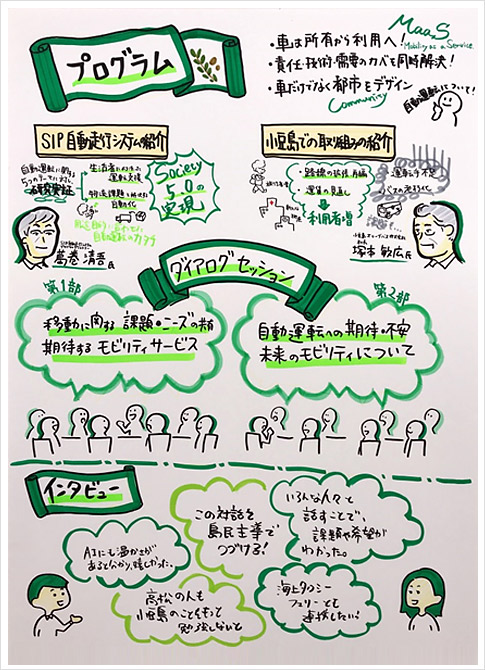 プログラム
・車は所有から利用へ!
MaaS
Mobility as a Service
・責任・技術・需要のカベを同時解決!
・車だけでなく都市をデザイン
Community
自動運転について!
SIP自動走行システム紹介
小豆島での取り組みの紹介
自動運転に関する
生活者に
運転支援
物流課題
自動化
Society
5.0の
実現
葛巻 清吾氏
・路線の拡張、再編
・運賃の見直し
利用者増
運転手不足
バスの老朽化
塚本 敏広氏
ダイアログセッション
第1部
移動に関する課題・ニーズの類
期待するモビリティサービス
第2部
自動運転への期待・不安
未来のモビリティについて
インタビュー
AIにも温かさが
あると分かり、嬉しかった。
この対話を
島民主導で
つづける!
いろんな人々と
話すことで、
課題や希望が
わかった。
高松の人も
小豆島のことをもって
勉強しないと
海上タクシー
フェリーとも
連携したい!